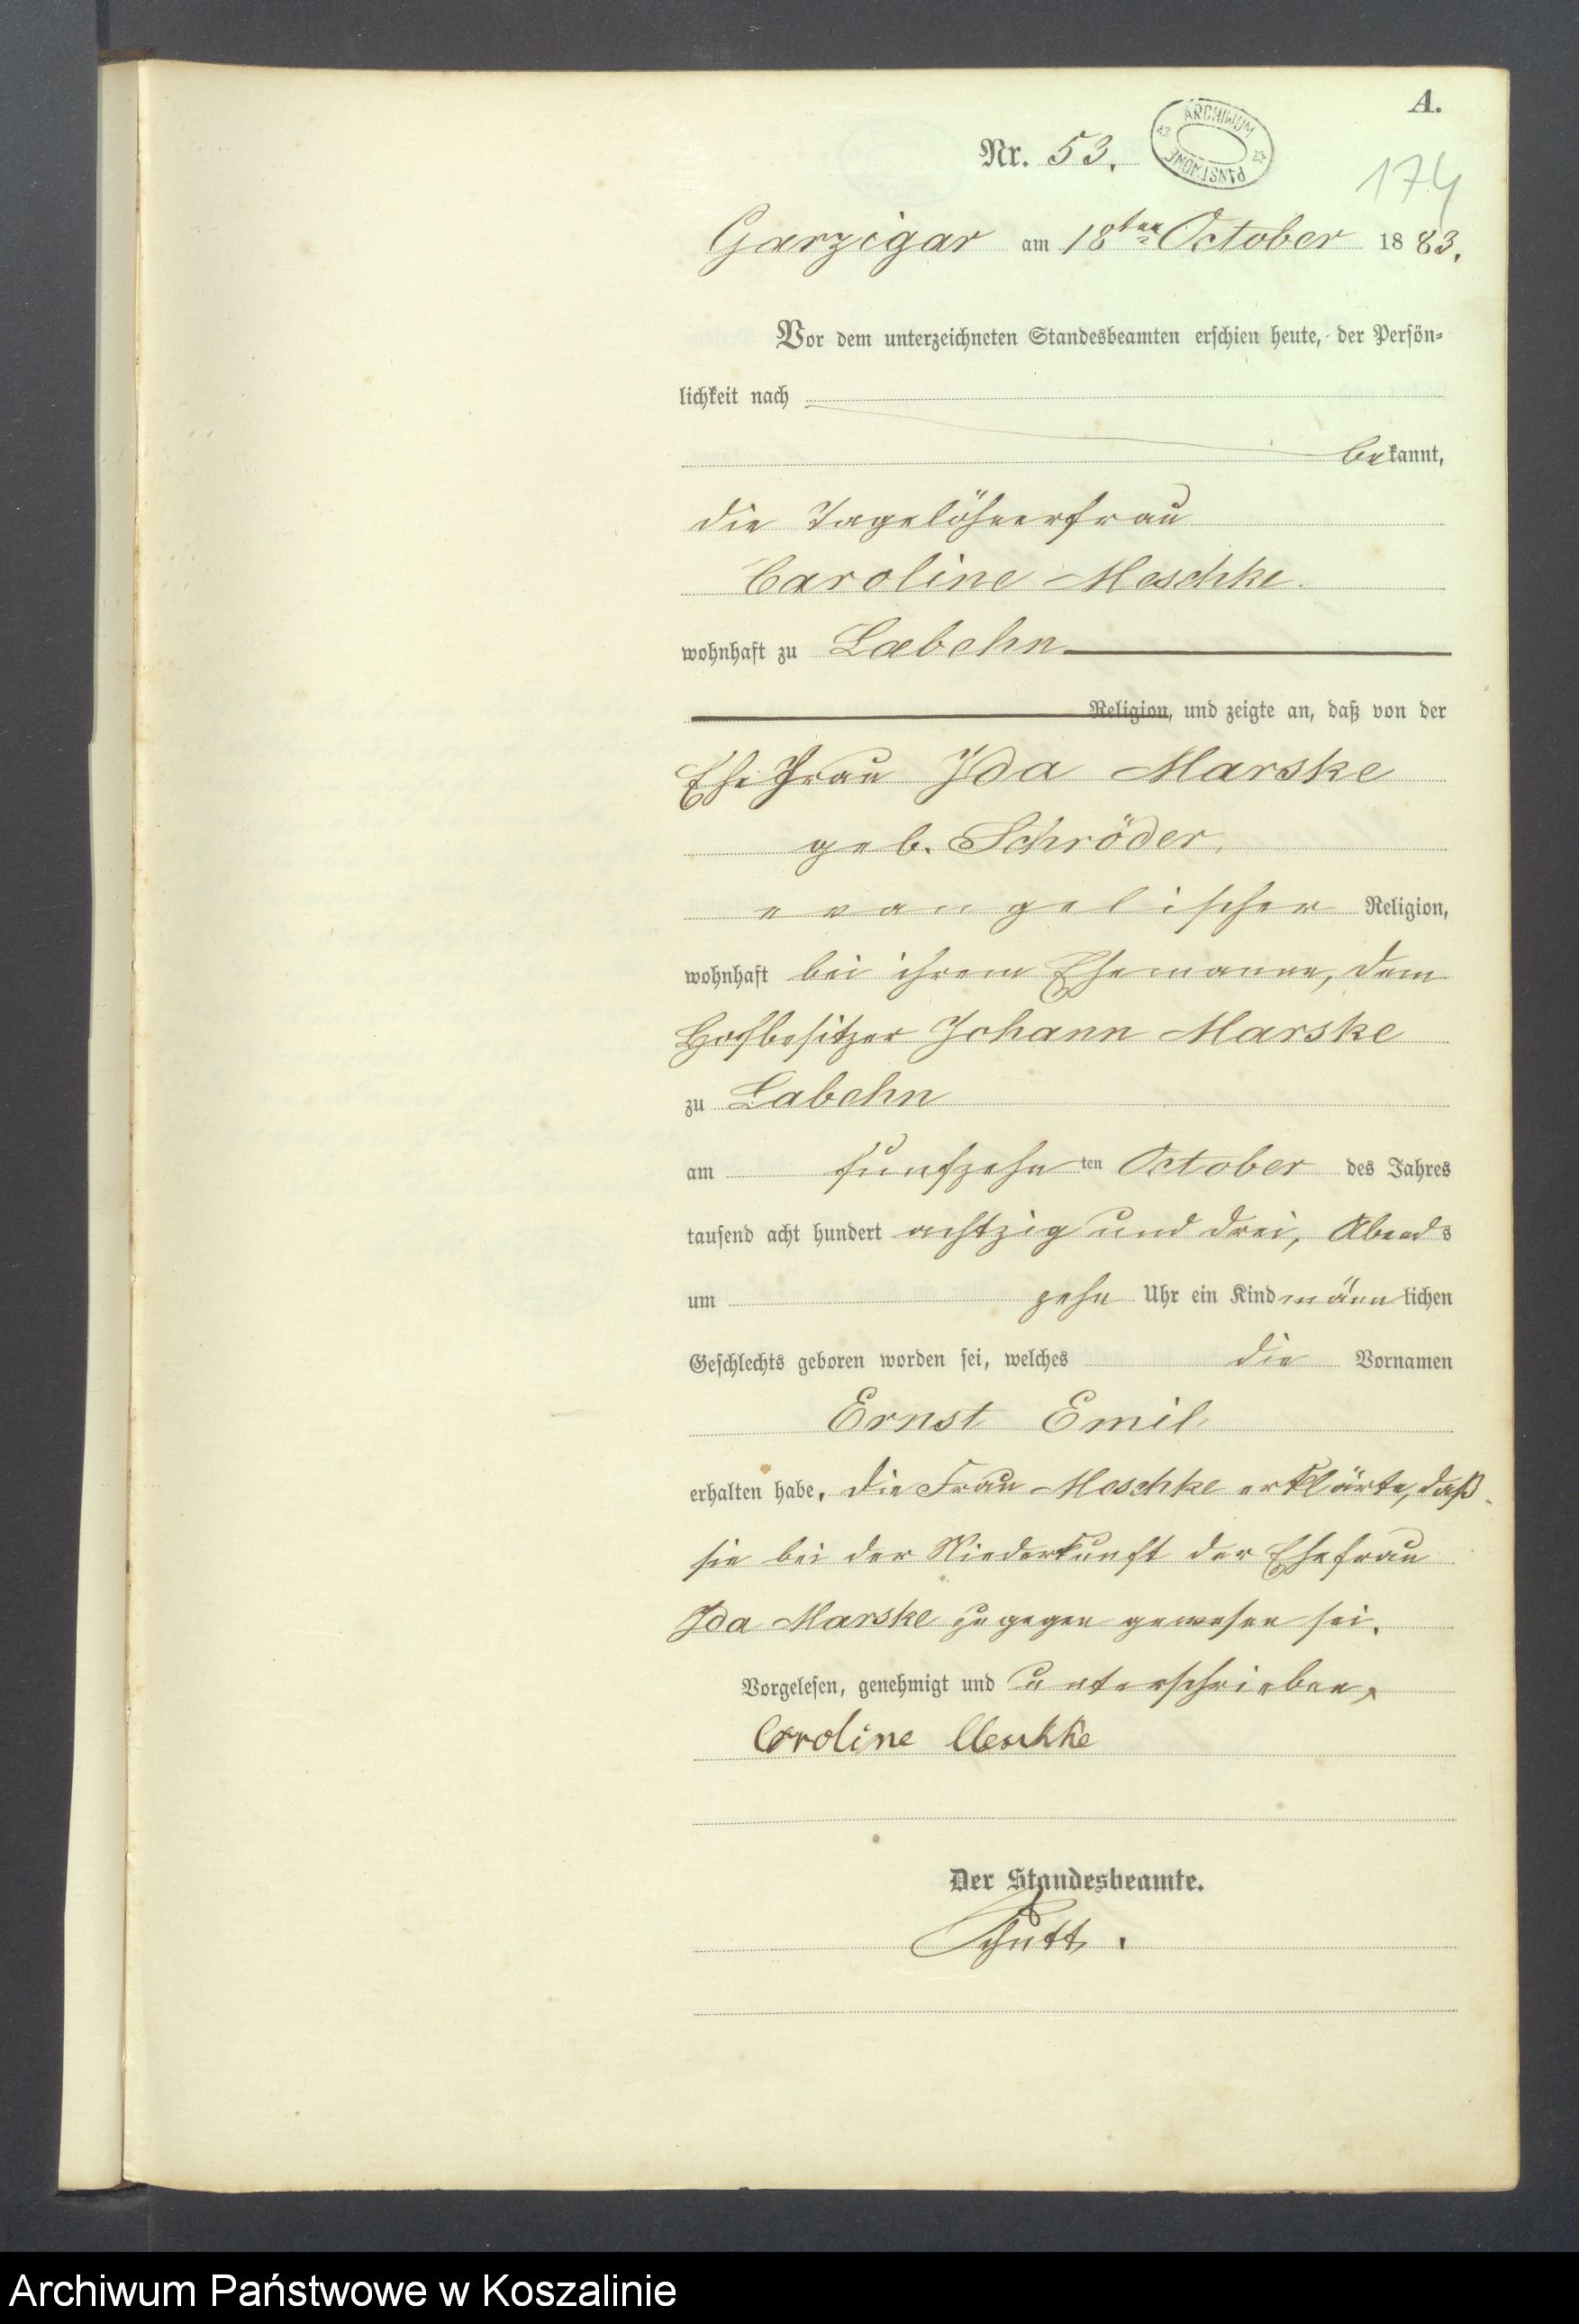 A.
Nr. 53.
ARCHIWUM PAŃSTWOWE
174
Garzigar am 18ten October 1883.
Vor dem unterzeichneten Standesbeamten erschien heute, der Persön-
lichkeit nach
bekannt,
die Tagelöhnerfrau
Caroline Meschke.
wohnhaft zu Labehn
Religion, und zeigte an, daß von der
Ehefrau Ida Marske
geb. Schröder,
evangelischer Religion,
wohnhaft bei ihrem Ehemanne, dem
Hofbesitzer Johann Marske
zu Labehn
am funfzehnten October des Jahres
tausend acht hundert achtzig und drei, Abends
um zehn Uhr ein Kind männlichen
Geschlechts geboren worden sei, welches die Vornamen
Ernst Emil
erhalten habe. die Frau Meschke erklärte, daß
sie bei der Niederkunft der Ehefrau
Ida Marske zugegen gewesen sei.
Vorgelesen, genehmigt und unterschrieben,
Caroline Meschke
Der Standesbeamte.
Schutt.
Archiwum Państwowe w Koszalinie